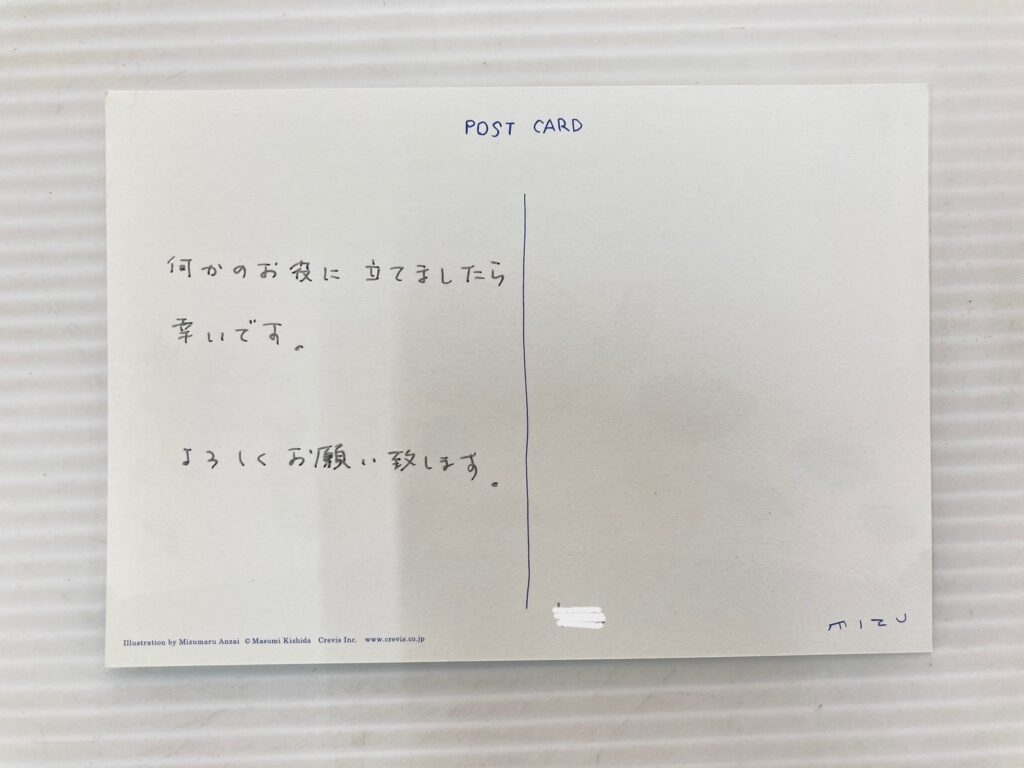 POST CARD
何かのお役に立てましたら
幸いです。
よろしくお願い致します。
Illustration by Mizumaru Anzai © Masumi Kishida Crevis Inc. www.crevis.co.jp
MIZU